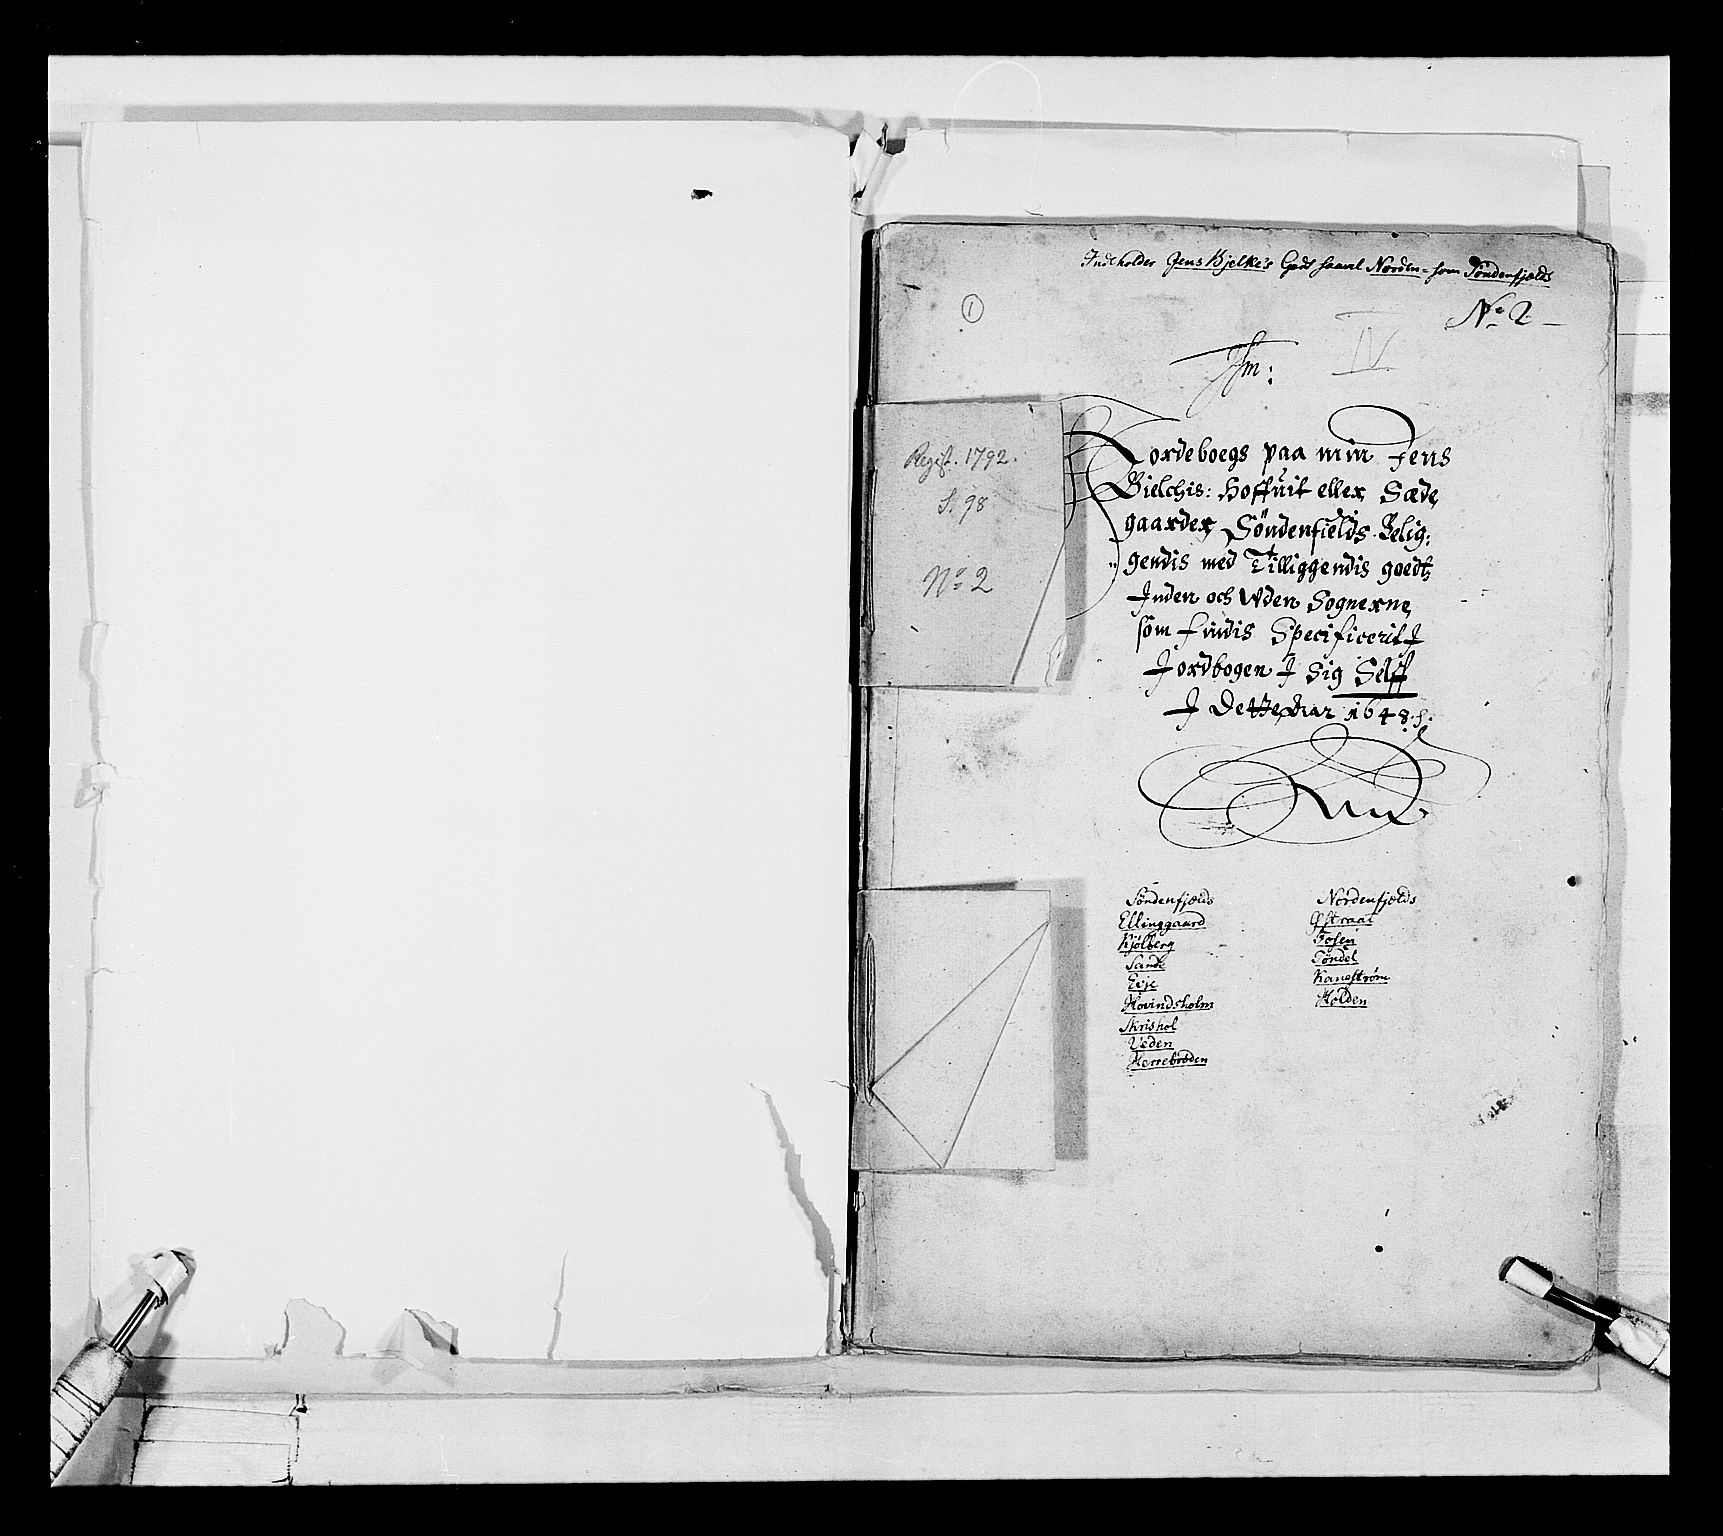 Indeholder Jens Bjelke's Gods saavel Norden- som Söndenfjelds
No 2 –
1
IV
Jhm:
Regist. 1792.
S. 98
No 2
Jordeboegs paa min Jens
Bielchis: Hoffuit eller Sæde
gaarder Söndenfields Belig:
gendis med Tilliggendis goedtz
Inden och Uden Sognerne
som findis Specificerit J
Jordbogen J Sig Selff
J Dette Aar 1648
Söndenfjelds
Ellinggaard
Kjölberg
Sande
Evje
Hovindsholm
Skrishol
Veden
Herrebröden
Nordenfjelds
Östraat
Fosen
Töndel
Kanestrøm
Holden